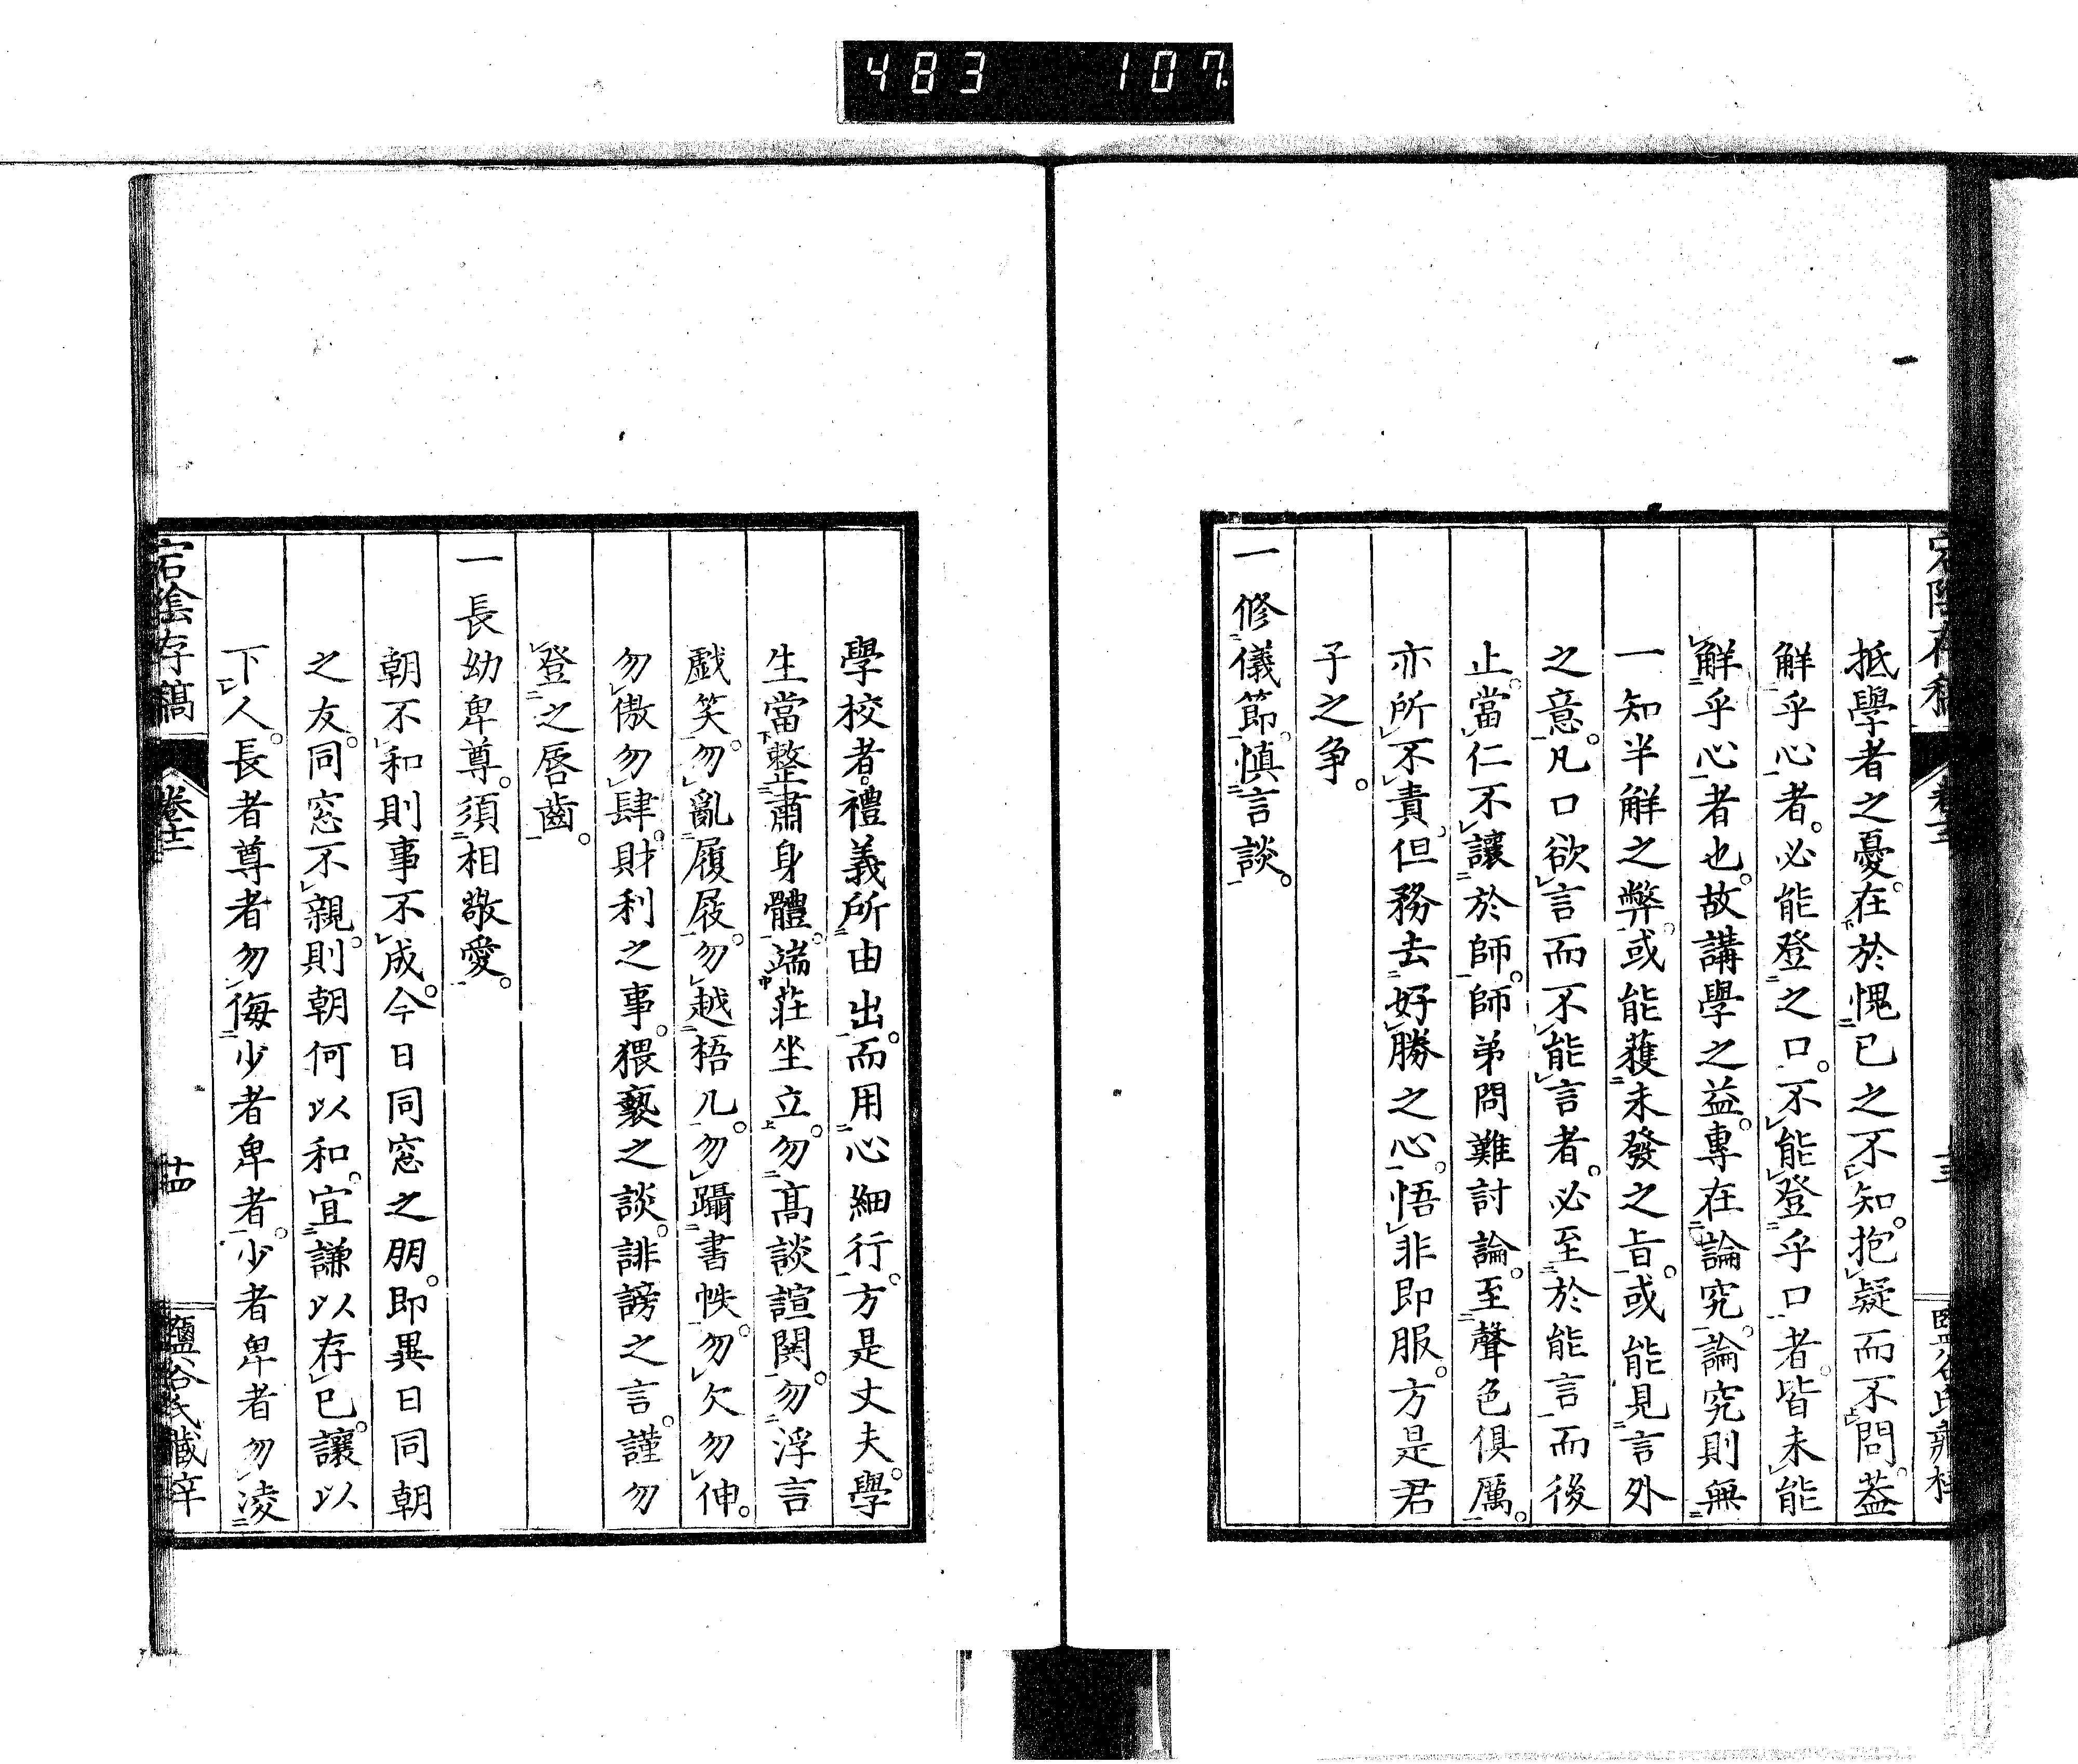 483 107
抵學者之憂。在於愧已之不知。抱疑而不問。蓋
解乎心者。必能登之口。不能登乎口者。皆未能
解乎心者也。故講學之益。專在論究。論究則無
一知半解之弊。或能獲未發之旨。或能見言外
之意。凡口欲言而不能言者。必至於能言而後
止。當仁不讓於師。師弟問難討論。至聲色俱厲。
亦所不責。但務去好勝之心。悟非即服。方是君
子之争。
一修儀節。慎言談。
學校者。禮義所由出。而用心細行。方是丈夫。學
生當整肅身體。端莊坐立。勿高談諠鬨。勿浮言
戲笑。勿亂履屐。勿越梧几。勿躡書帙。勿欠勿伸。
勿傲勿肆。財利之事。猥褻之談。誹謗之言。謹勿
登之唇齒。
一長幼卑尊。須相敬愛。
朝不和則事不成。今日同窓之朋。即異日同朝
之友。同窓不親。則朝何以和。宜謙以存已。讓以
下人。長者尊者勿侮少者卑者。少者卑者勿凌
宕陰存稿 卷十二 十四 鹽谷氏藏梓